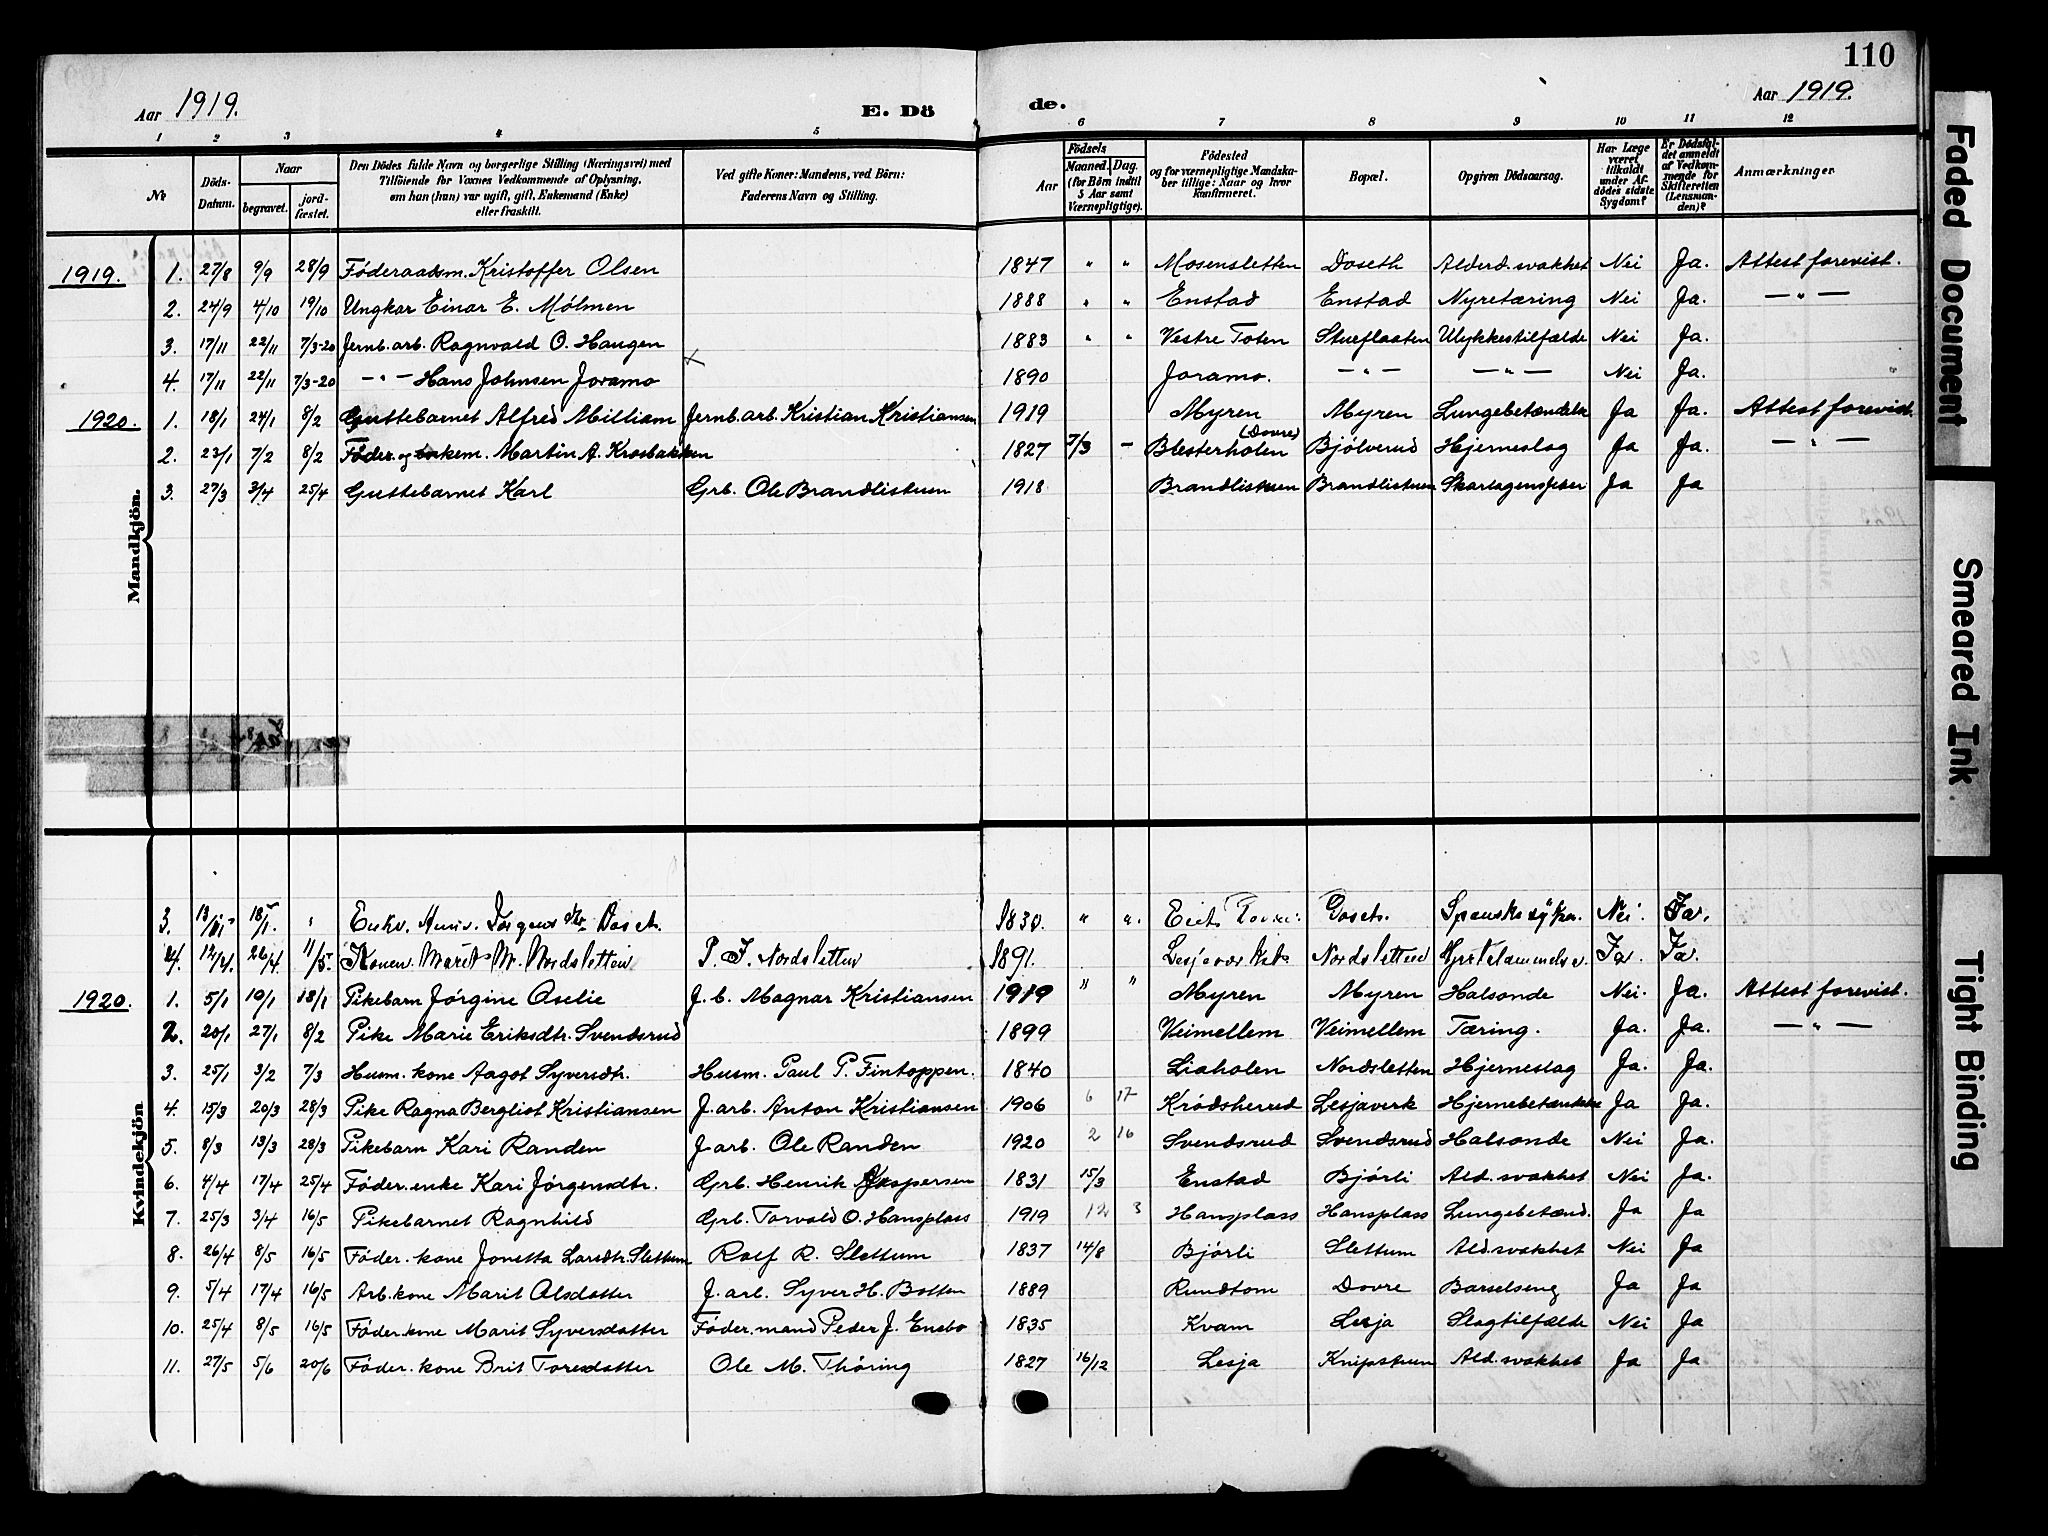 110
Aar 1919. E. Dö de. Aar 1919.
1 2 3 4 5 6 7 8 9 10 11 12
№ Döds-Datum. Naar begravet. jord-fæstet. Den Dödes fulde Navn og borgerlige Stilling (Næringsvei) med Tilföiende for Voxnes Vedkommende af Oplysning, om han (hun) var ugift, gift, Enkemand (Enke) eller fraskilt. Ved gifte Koner: Mandens, ved Börn: Faderens Navn og Stilling. Aar Födsels Maaned. Dag. (for Börn indtil 5 Aar samt Værnepligtige). Födested og for værnepligtige Mandskaber tillige: Naar og hvor konfirmeret. Bopæl. Opgiven Dödsaarsag. Har Læge været tilkaldt under Afdödes sidste Sygdom? Er Dödsfaldet anmeldt af Vedkommende for Skifteretten (Lensmanden)? Anmærkninger
Mandkjön.
1919. 1. 27/8 9/9 28/9 Föderaadsm. Kristoffer Olsen 1847 " " Mosensletten Doseth Alderd.svakhet Nei Ja. Attest forevist.
2. 24/9 4/10 19/10 Ungkar Einar E. Mölmen 1888 " " Enstad Enstad Nyretæring Nei Ja. — " —
3. 17/11 22/11 7/3-20 Jernb.arb. Ragnvald O. Haugen 1883 " " Vestre Toten Stueflaaten Ulykkestilfælde Nei Ja.
4. 17/11 22/11 7/3-20 — " — Hans Johnsen Joramo x 1890 Joramo. — " — — " — Nei Ja.
1920. 1. 18/1 24/1 8/2 Guttebarnet Alfred Milliam Jernb.arb. Kristian Kristiansen 1919 Myren Myren Lungebetændelse Ja Ja. Attest forevist.
2. 23/1 7/2 8/2 Föder. og enkem. Martin A. Krosbakken 1827 7/3 — Blesterholen (Dovre) Bjölverud Hjerneslag Ja Ja. — " —
3. 27/3 3/4 25/4 Guttebarnet Karl Grb. Ole Brandlistuen 1918 Brandlistuen Brandlistuen Skarlagensfeber Ja Ja
Kvindekjön
3. 18/1. " Enke. Jörgensdtr. Doset. 1830. " ". Doset. Spanske syken. Nei. Ja.
4. 12/4. 26/4 11/5. Konen Marit M. Nordsletten P. J. Nordsletten 1891. Lesjaværket Nordsletten Ja. Ja.
1920. 1. 5/1 10/1 18/1 Pikebarn Jörgine Oselie J. b. Magnar Kristiansen 1919 " " Myren Myren Halsonde Nei. Ja. Attest forevist.
2. 20/1 27/1 8/2 Pike Marie Eriksdtr. Svendsrud 1899 Veimellem Veimellem Tæring. Ja. Ja. — " —
3. 25/1 3/2 7/3 Husm. kone Aagot Syversdtr. Husm. Paul P. Fintoppen. 1840 Liaholen Nordsletten Hjerneslag Ja. Ja.
4. 15/3 20/3 28/3 Pike Ragna Bergliot Kristiansen J.arb. Anton Kristiansen 1906 6 17 Krödsherred Lesjaverk Hjernebetændelse Ja Ja.
5. 8/3 13/3 28/3 Pikebarn Kari Randen J.arb. Ole Randen 1920 2 16 Svendsrud Svendsrud Halsonde Nei Ja.
6. 4/4 17/4 25/4 Föder.enke Kari Jörgensdtr. Grb. Henrik Jespersen 1831 15/3 Enstad Bjórli Ald.svakhet Nei Ja.
7. 25/3 3/4 16/5 Pikebarnet Ragnhild Grb. Torvald O. Hansplass 1919 12 3 Hansplass Hansplass Lungebetænd. Ja Ja
8. 26/4 8/5 16/5 Föder. kone Jonetta Larsdtr. Slettum Rolf R. Slettum 1837 14/8 Bjórli Slettum Ald.svakhet Nei Ja
9. 5/4 17/4 16/5 Arb.kone Marit Olsdatter J.arb. Syver H. Botten 1889 Rundtom Dovre Barselseng Ja Ja
10. 25/4 8/5 16/5 Föder.kone Marit Syversdatter Föder.mand Peder J. Enebo 1835 Kvam Lesja Slagtilfælde Nei Ja
11. 27/5 5/6 20/6 Föder. kone Brit Toresdatter Ole M. Thöring 1827 16/12 Lesja Knipstuen Ald.svakhet Ja Ja
Faded Document
Smeared Ink.
Tight Binding